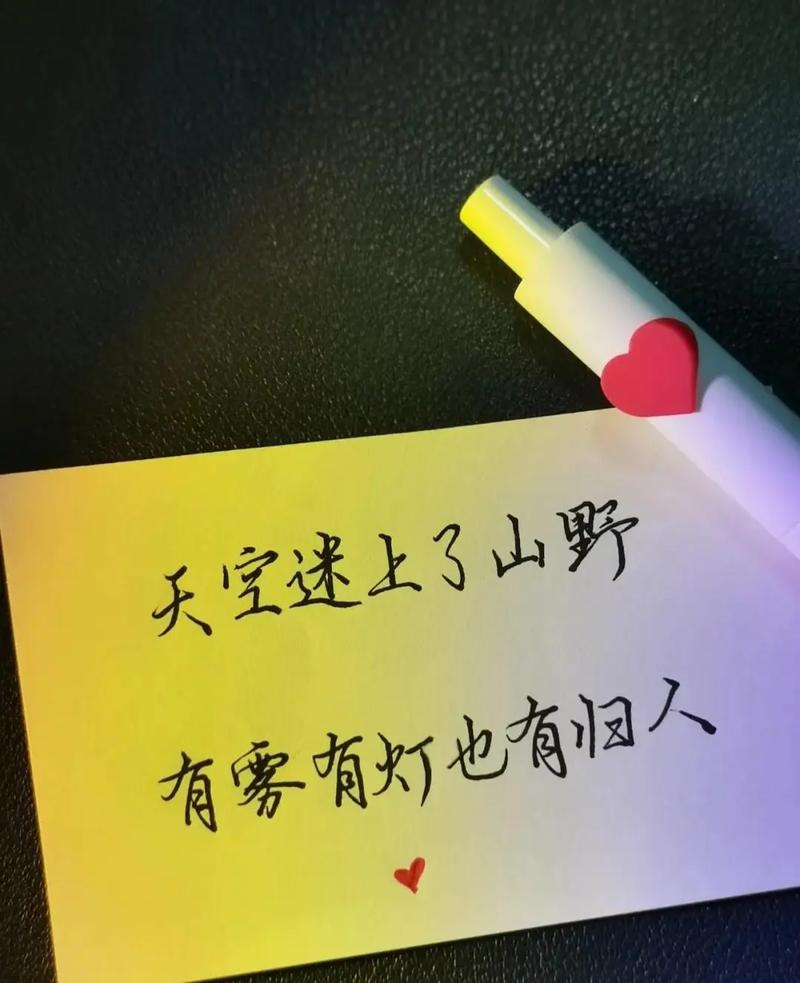 天空迷上了山野
有雾有灯也有归人